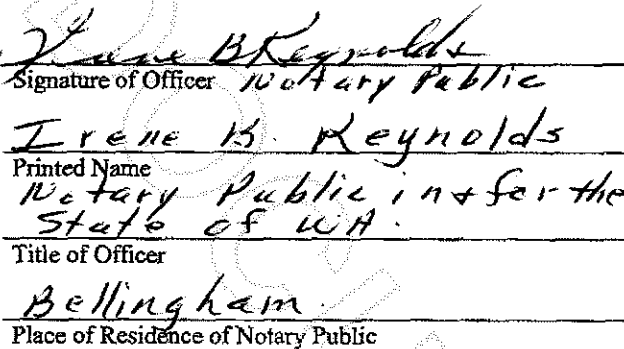 Irene B Reynolds
Signature of Officer Notary Public
Irene B. Reynolds
Printed Name
Notary Public in & for the
State of WA.
Title of Officer
Bellingham.
Place of Residence of Notary Public